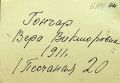 Гончар
Вера Викторовна
1911.
1 Песчаная 20